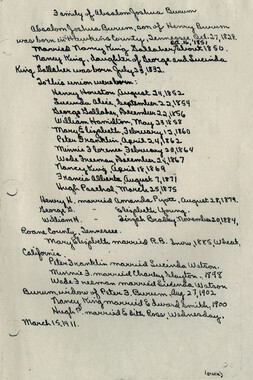 Family of Absalom Joshua Burum
Absalom Joshua Burum, son of Henry Burum
was born in Hawkins County, Tennessee, Oct. 27, 1828.
Married Nancy King Gallaher, about 1850.
Nancy King, daughter of George and Lucinda
King Gallaher was born July 28, 1832.
To this union were born:
Henry Houston August 24, 1852
Lucinda Alice, September 22, 1854
George Gallaher, December 22, 1856
William Hamilton, May 25, 1858
Mary Elizabeth, February 12, 1860
Peter Franklin, April 24, 1862
Minnie Florence February 20, 1864
Wade Freeman, December 25, 1867
Nancy King, April 18, 1869
Francis Alberta August 7, 1871
Hugh Paschal, March 25, 1875
Henry H. married Amanda August 28, 1879.
George G. - Elizabeth Young.
William H. - Bradley, November 20, 1884,
Roane County, Tennessee.
Mary Elizabeth married R.B. Snow, 1885, Wheat,
California.
Peter Franklin married Lucinda Watson.
Minnie F. married Charley Clayton, 1898
Wade Freeman married Lucinda Watson
Burum, widow of Peter F. Burum, Aug 27, 1902.
Nancy King married Edward Smith, 1900
Hugh P. married Edith Ross, Wednesday,
March 15, 1911.
(over)